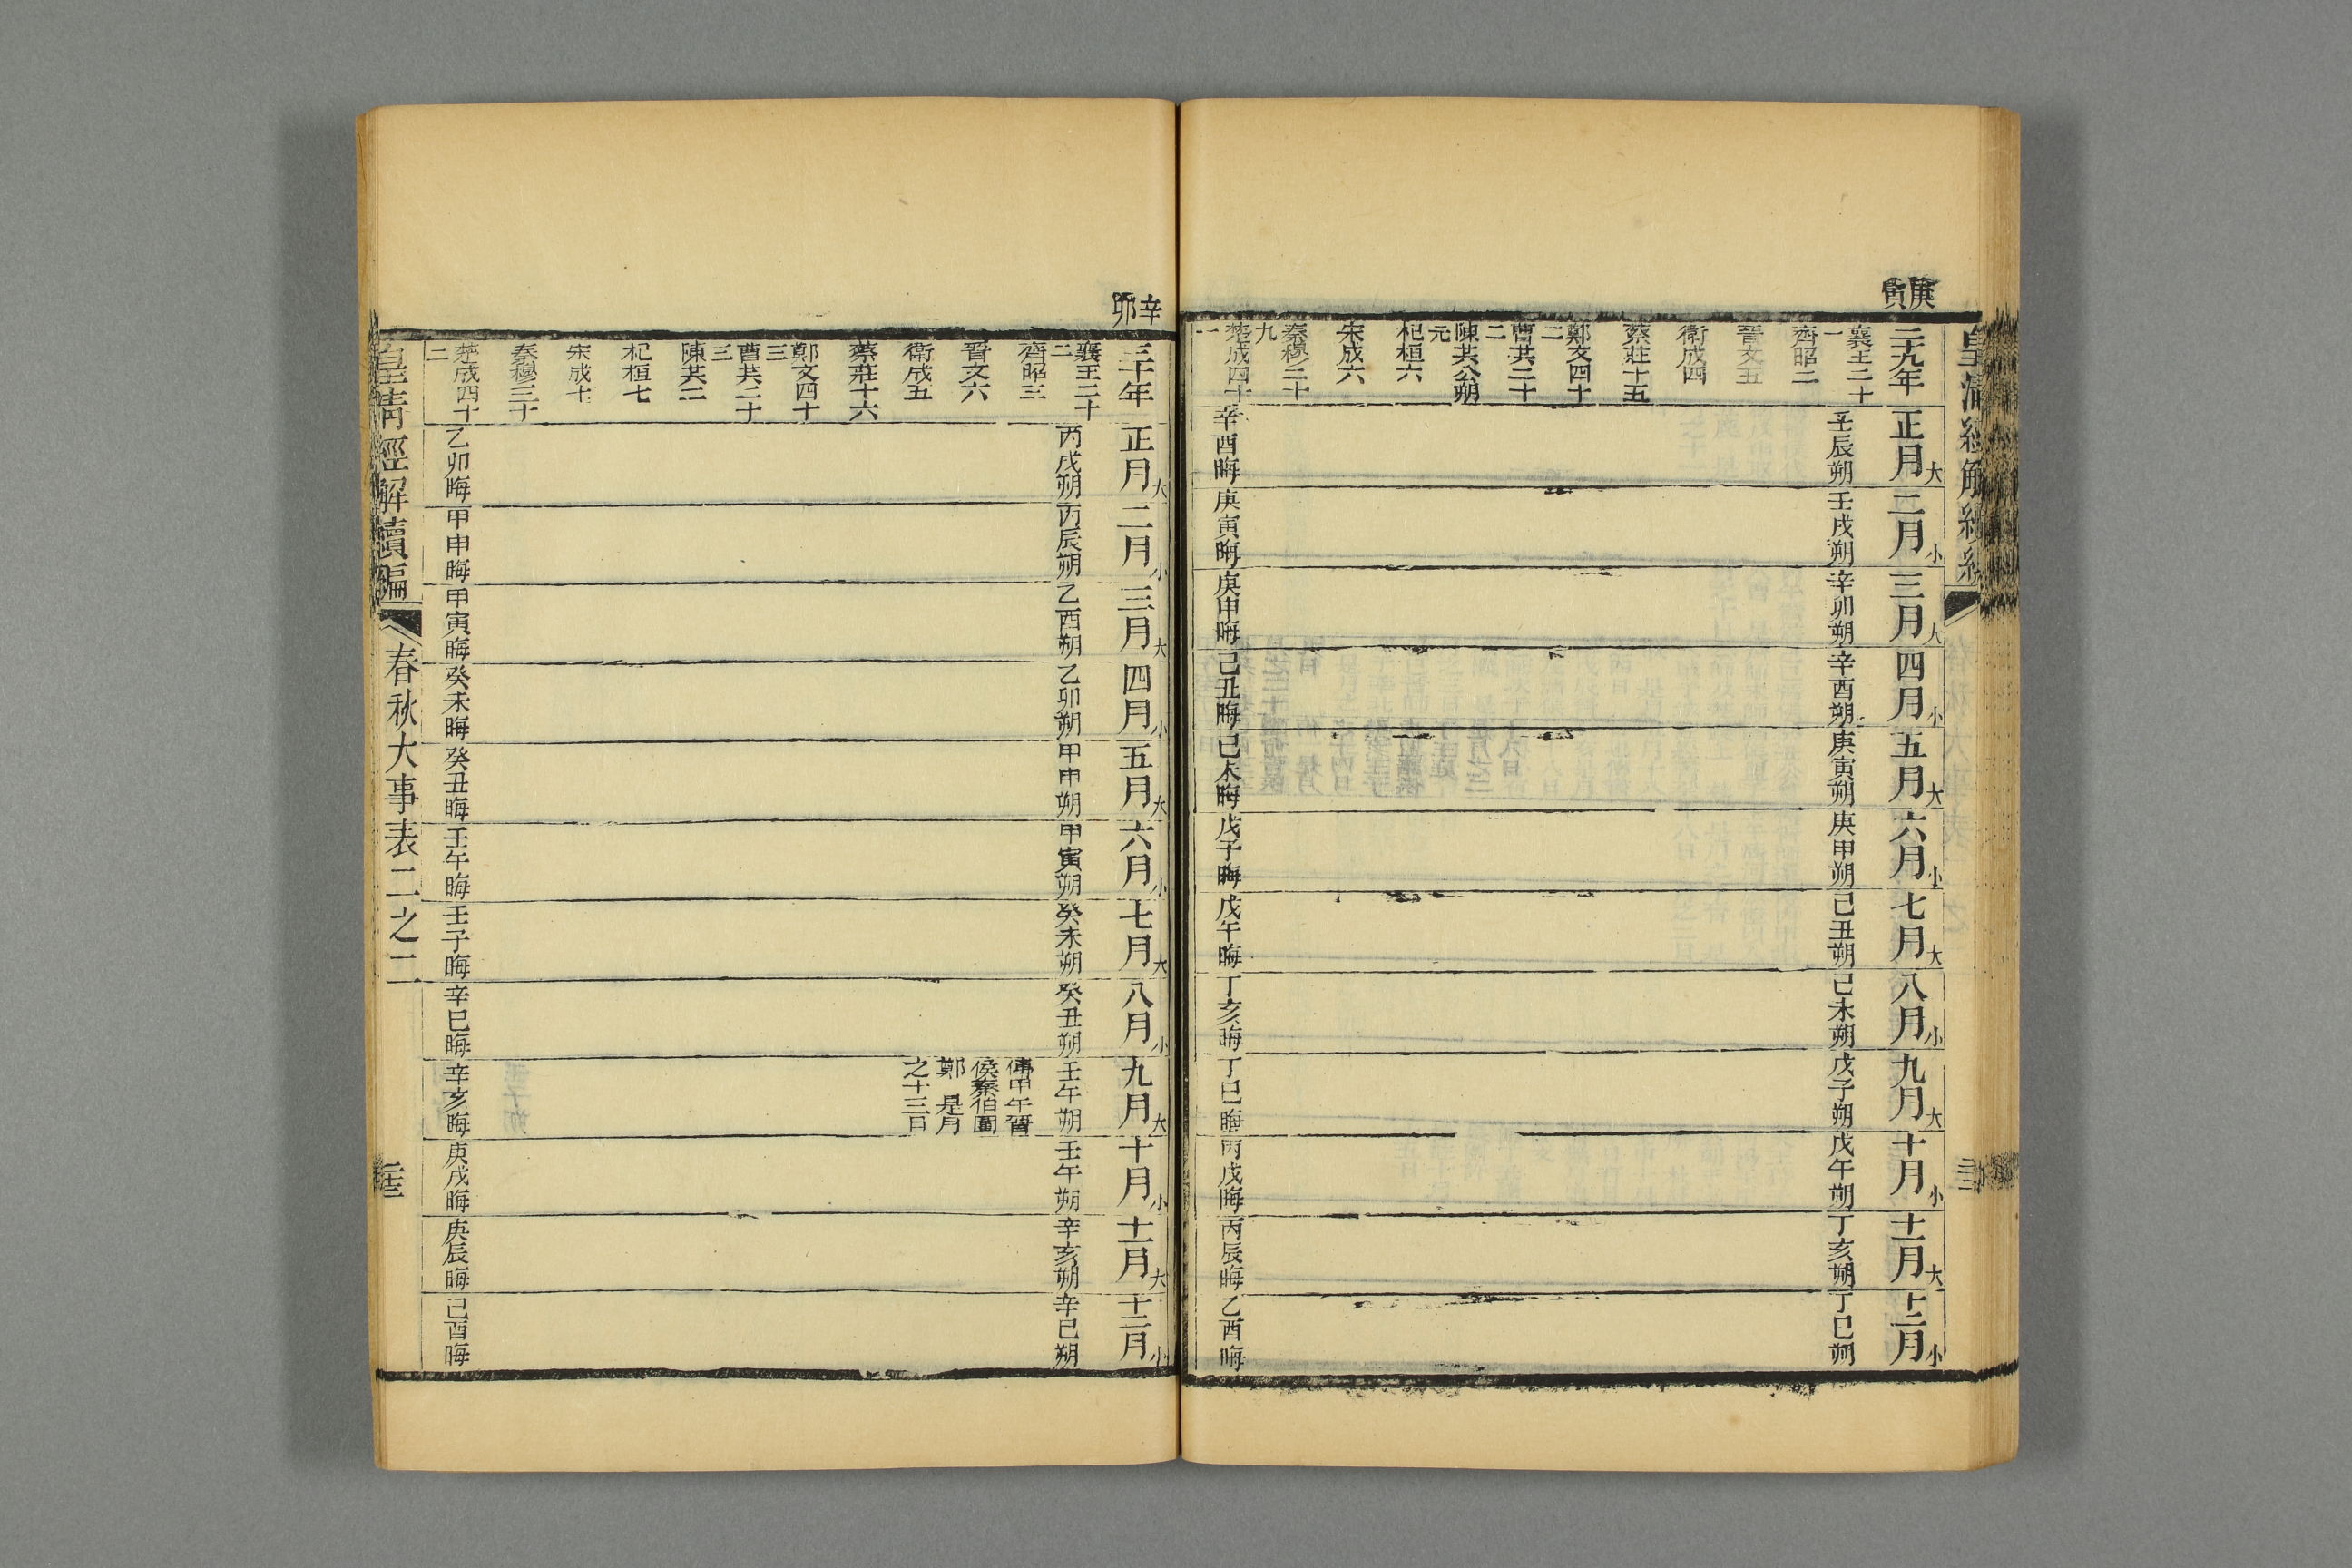 庚寅
二十九年
襄王二十一
齊昭二
晉文五
衛成四
蔡莊十五
鄭文四十二
曹共二十二
陳共公朔元
杞桓六
宋成六
秦穆二十九
楚成四十一
正月大
壬辰朔
辛酉晦
二月小
壬戌朔
庚寅晦
三月大
辛卯朔
庚申晦
四月小
辛酉朔
己丑晦
五月大
庚寅朔
己未晦
六月小
庚申朔
戊子晦
七月大
己丑朔
戊午晦
八月小
己未朔
丁亥晦
九月大
戊子朔
丁巳晦
十月小
戊午朔
丙戌晦
十一月大
丁亥朔
丙辰晦
十二月小
丁巳朔
乙酉晦
辛卯
三十年
襄王二十二
齊昭三
晉文六
衛成五
蔡莊十六
鄭文四十三
曹共二十三
陳共二
杞桓七
宋成七
秦穆三十
楚成四十二
正月大
丙戌朔
乙卯晦
二月小
丙辰朔
甲申晦
三月大
乙酉朔
甲寅晦
四月小
乙卯朔
癸未晦
五月大
甲申朔
癸丑晦
六月小
甲寅朔
壬午晦
七月大
癸未朔
壬子晦
八月小
癸丑朔
辛巳晦
九月大
壬午朔
傳甲午晉
侯秦伯圍
鄭 是月
之十三日
辛亥晦
十月小
壬子朔
庚戌晦
十一月大
辛亥朔
庚辰晦
十二月小
辛巳朔
己酉晦
皇清經解續編
春秋大事表二之二